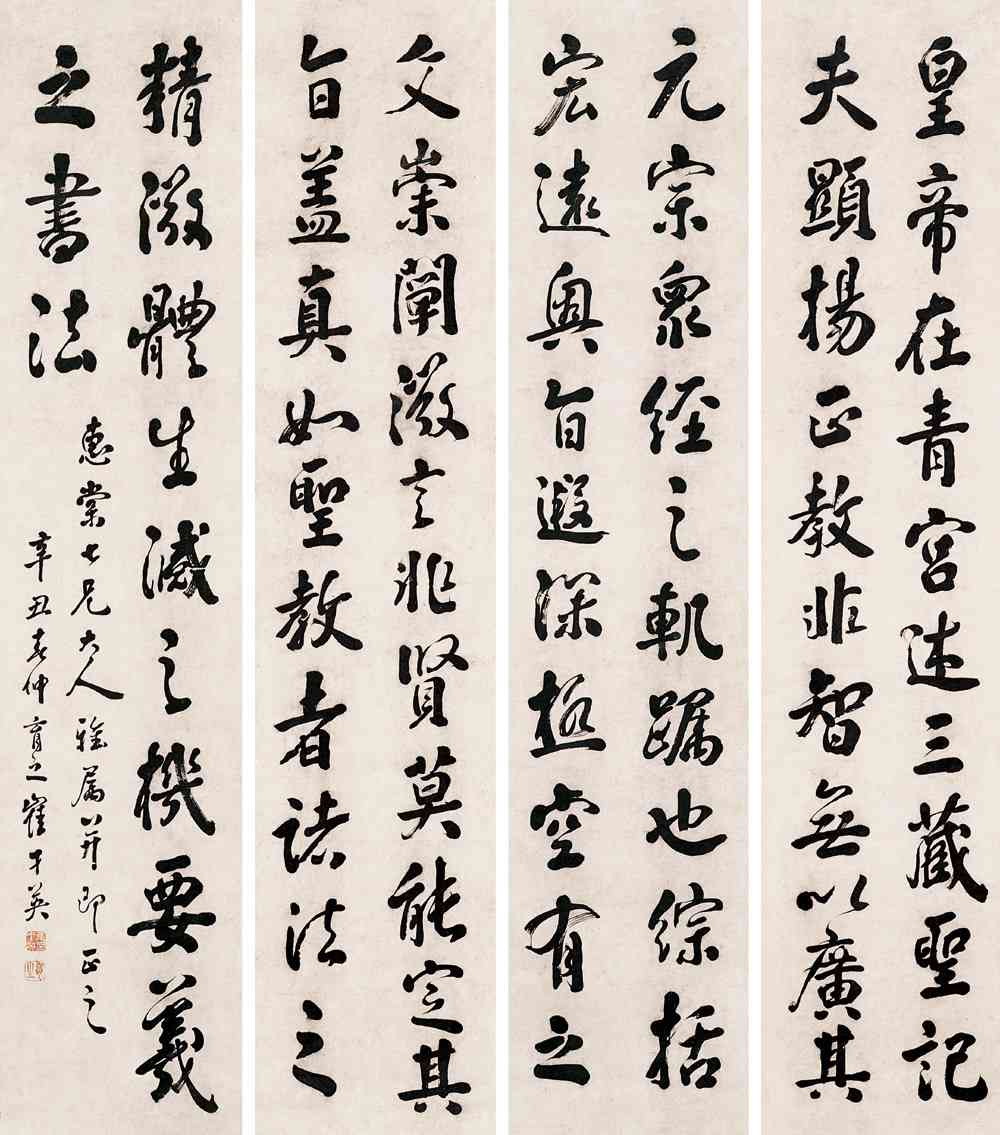 皇帝在青宮述三藏聖記
夫顯揚正教非智無以廣其
元宗眾經之軌躅也綜括
宏遠奧旨遐深極空有之
文崇闡微言非賢莫能定其
旨蓋真如聖教者諸法之
精微體生滅之機要義
之書法
惠棠七兄大人雅屬并即正之
辛丑春仲育之崔
英